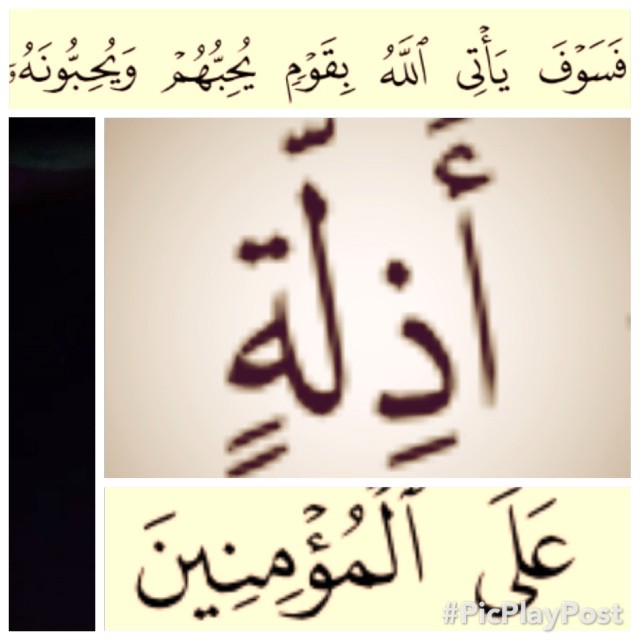 فَسَوْفَ يَأْتِى ٱللَّهُ بِقَوْمٍ يُحِبُّهُمْ وَيُحِبُّونَهُۥٓ
أَذِلَّةٍ
عَلَى ٱلْمُؤْمِنِينَ
#PicPlayPost